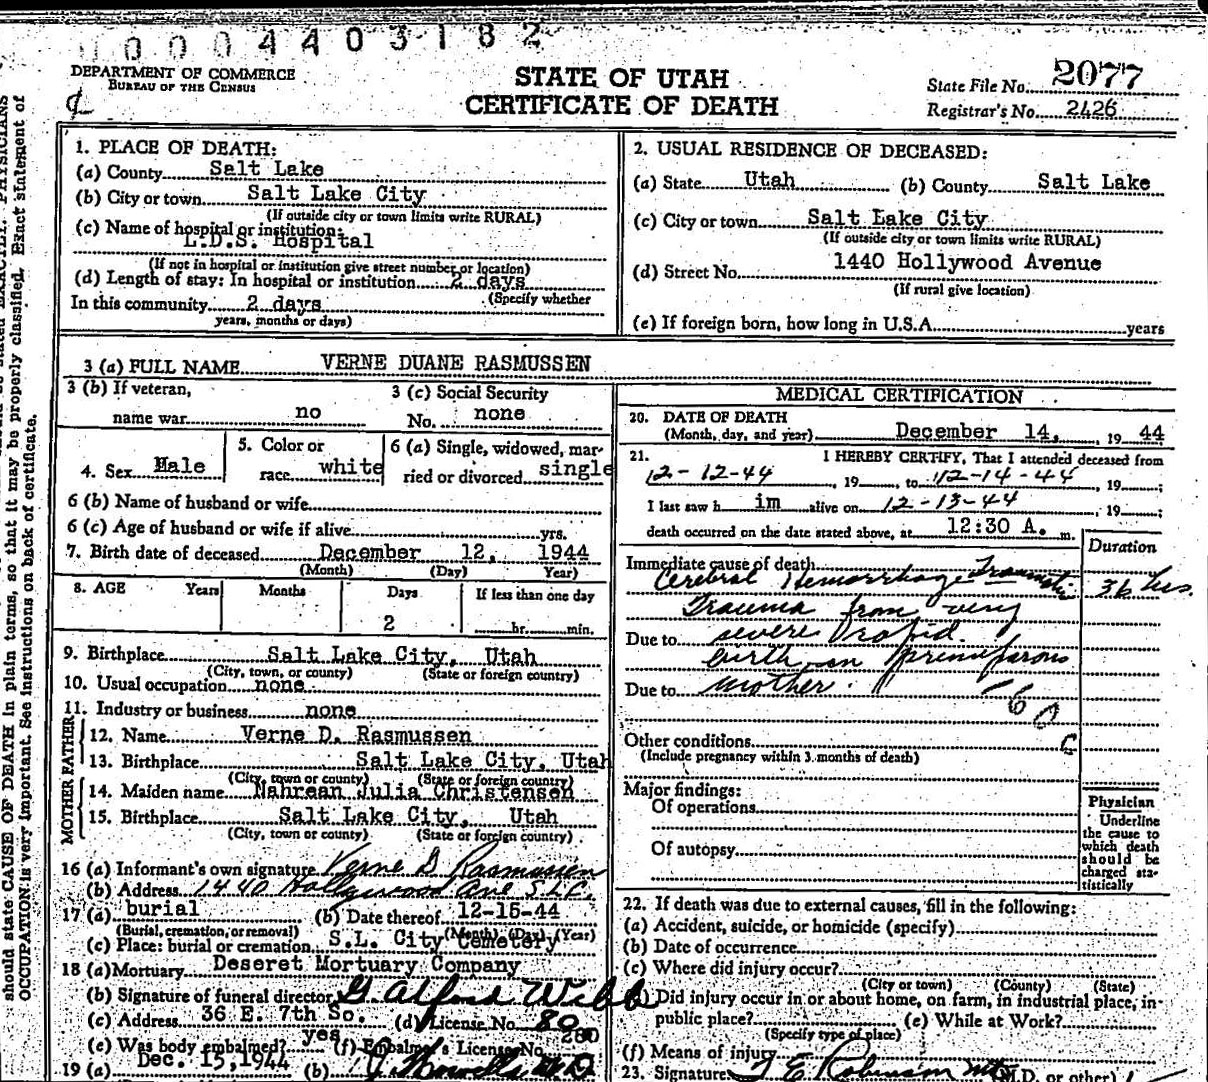 0004403182
DEPARTMENT OF COMMERCE
BUREAU OF THE CENSUS
STATE OF UTAH
CERTIFICATE OF DEATH
State File No. 2077
Registrar's No. 2426
1. PLACE OF DEATH:
(a) County Salt Lake
(b) City or town Salt Lake City
(If outside city or town limits write RURAL)
(c) Name of hospital or institution:
L.D.S. Hospital
(If not in hospital or institution give street number or location)
(d) Length of stay: In hospital or institution 2 days
(Specify whether
In this community 2 days
years, months or days)
2. USUAL RESIDENCE OF DECEASED:
(a) State Utah (b) County Salt Lake
(c) City or town Salt Lake City
(If outside city or town limits write RURAL)
(d) Street No. 1440 Hollywood Avenue
(If rural give location)
(e) If foreign born, how long in U.S.A. years
3 (a) FULL NAME VERNE DUANE RASMUSSEN
3 (b) If veteran,
name war no
3 (c) Social Security
No. none
4. Sex Male
5. Color or
race white
6 (a) Single, widowed, mar-
ried or divorced single
6 (b) Name of husband or wife
6 (c) Age of husband or wife if alive yrs.
7. Birth date of deceased December 12, 1944
(Month) (Day) Year)
8. AGE Years Months Days If less than one day
2 hr. min.
9. Birthplace Salt Lake City, Utah
(City, town, or county) (State or foreign country)
10. Usual occupation none
11. Industry or business none
FATHER
12. Name Verne D. Rasmussen
13. Birthplace Salt Lake City, Utah
(City, town or county) (State or foreign country)
MOTHER
14. Maiden name Nahrean Julia Christensen
15. Birthplace Salt Lake City, Utah
(City, town, or county) (State or foreign country)
16 (a) Informant's own signature Verne D Rasmussen
(b) Address 1440 Hollywood Ave S.L.C.
17 (a) burial (b) Date thereof 12-15-44
(Burial, cremation, or removal) (Month) (Day) (Year)
(c) Place: burial or cremation S.L. City Cemetery
18 (a) Mortuary Deseret Mortuary Company
(b) Signature of funeral director G. Alford Webb
(c) Address 36 E. 7th So. (d) License No. 80
(e) Was body embalmed? yes (f) Embalmer's License No. 280
19 (a) Dec. 15, 1944 (b)
MEDICAL CERTIFICATION
20. DATE OF DEATH
(Month, day, and year) December 14, 19 44
21. I HEREBY CERTIFY, That I attended deceased from
12-12-44, 19 , to 12-14-44, 19 ;
I last saw h im alive on 12-13-44, 19 ;
death occurred on the date stated above, at 12:30 A. m.
Duration
Immediate cause of death
Cerebral Hemorrhage Traumatic 36 hrs.
Trauma from very
Due to severe rapid
birth in primiparous
Due to mother.
Other conditions
(Include pregnancy within 3 months of death)
Major findings:
Of operations
Of autopsy
Physician
Underline
the cause to
which death
should be
charged sta-
tistically
22. If death was due to external causes, fill in the following:
(a) Accident, suicide, or homicide (specify)
(b) Date of occurrence
(c) Where did injury occur?
(City or town) (County) (State)
Did injury occur in or about home, on farm, in industrial place, in-
public place? (e) While at Work?
(Specify type of place)
(f) Means of injury
23. Signature T E Robinson M.D. or other)
should state CAUSE OF DEATH in plain terms, so that it may be properly classified. Exact statement of
OCCUPATION is very important. See instructions on back of certificate.